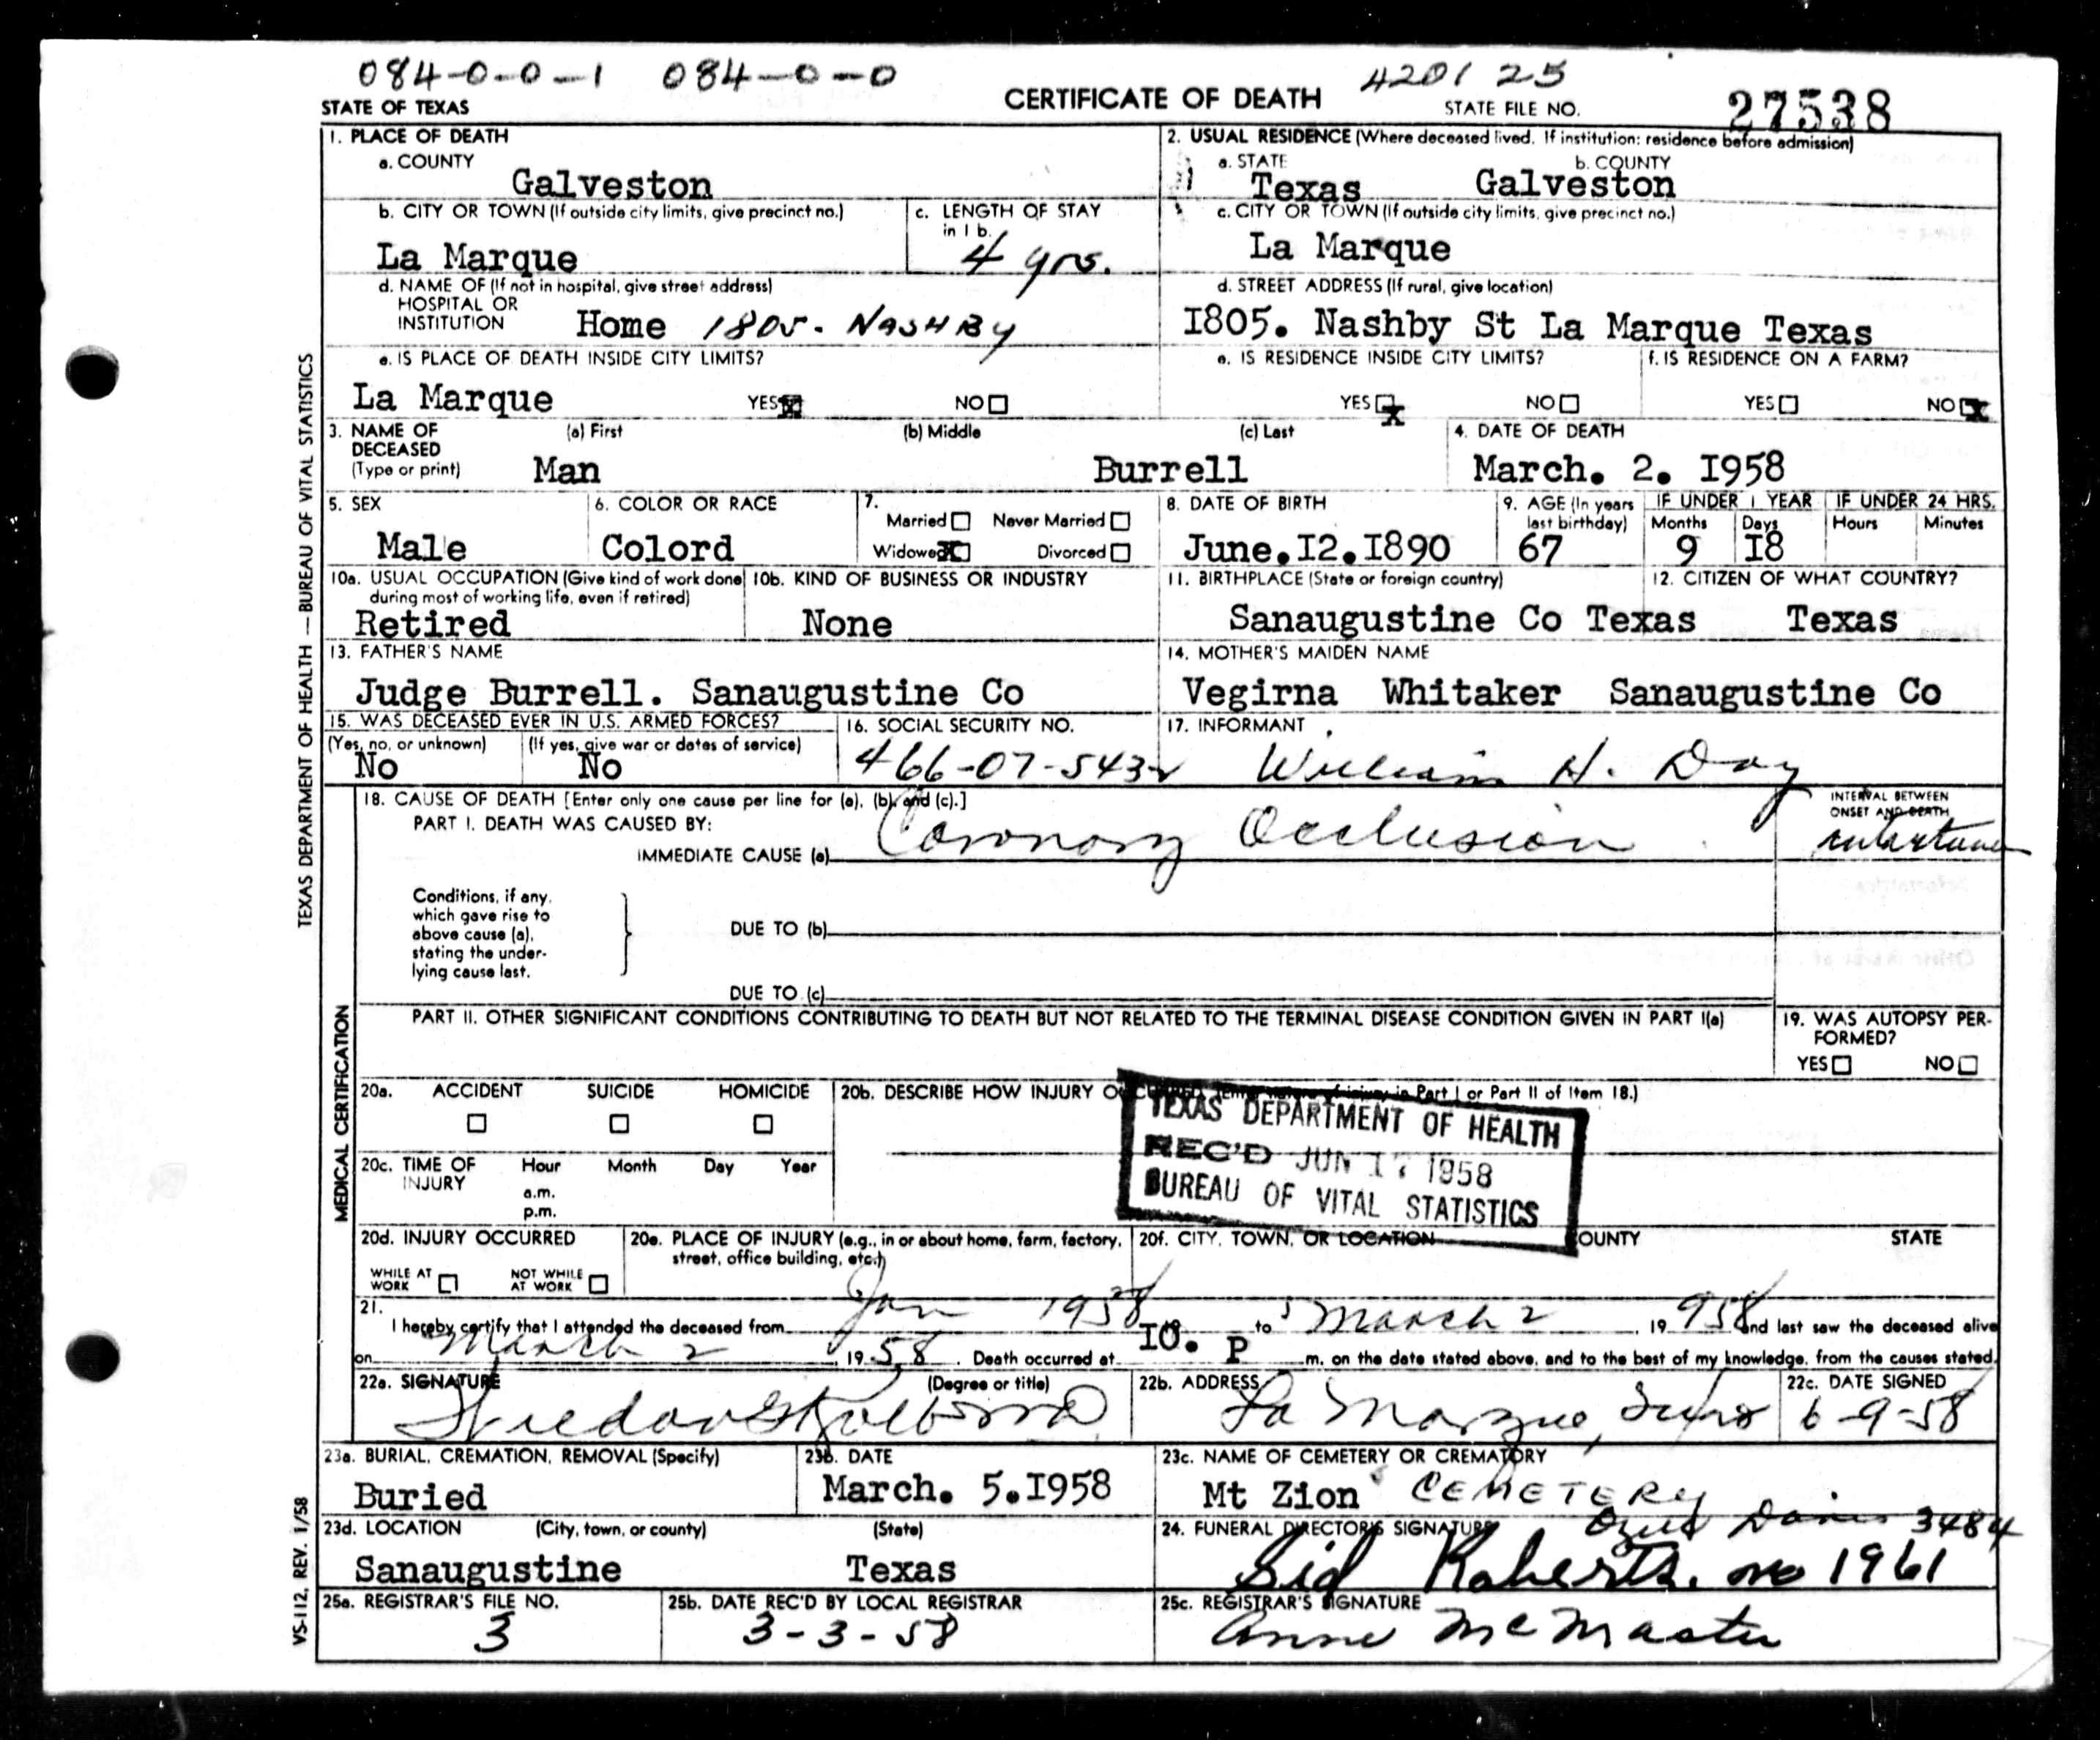 084-0-0-1 084-0-0 4201 25
STATE OF TEXAS CERTIFICATE OF DEATH STATE FILE NO. 27538
TEXAS DEPARTMENT OF HEALTH — BUREAU OF VITAL STATISTICS
1. PLACE OF DEATH
a. COUNTY
Galveston
2. USUAL RESIDENCE (Where deceased lived. If institution: residence before admission)
a. STATE b. COUNTY
Texas Galveston
b. CITY OR TOWN (If outside city limits, give precinct no.)
La Marque
c. LENGTH OF STAY
in 1 b.
4 yrs.
c. CITY OR TOWN (If outside city limits, give precinct no.)
La Marque
d. NAME OF (If not in hospital, give street address)
HOSPITAL OR
INSTITUTION Home 1805. NASHBy
d. STREET ADDRESS (If rural, give location)
I805. Nashby St La Marque Texas
e. IS PLACE OF DEATH INSIDE CITY LIMITS?
La Marque YES X NO
e. IS RESIDENCE INSIDE CITY LIMITS?
YES X NO
f. IS RESIDENCE ON A FARM?
YES NO X
3. NAME OF DECEASED
(Type or print)
(a) First (b) Middle (c) Last
Man Burrell
4. DATE OF DEATH
March. 2. I958
5. SEX
Male
6. COLOR OR RACE
Colord
7.
Married Never Married
Widowed X Divorced
8. DATE OF BIRTH
June.I2.I890
9. AGE (In years
last birthday)
67
IF UNDER 1 YEAR
Months Days
9 I8
IF UNDER 24 HRS.
Hours Minutes
10a. USUAL OCCUPATION (Give kind of work done
during most of working life, even if retired)
Retired
10b. KIND OF BUSINESS OR INDUSTRY
None
11. BIRTHPLACE (State or foreign country)
Sanaugustine Co Texas
12. CITIZEN OF WHAT COUNTRY?
Texas
13. FATHER'S NAME
Judge Burrell. Sanaugustine Co
14. MOTHER'S MAIDEN NAME
Vegirna Whitaker Sanaugustine Co
15. WAS DECEASED EVER IN U.S. ARMED FORCES?
(Yes, no, or unknown) (If yes, give war or dates of service)
No No
16. SOCIAL SECURITY NO.
466-07-5432
17. INFORMANT
William H. Day
MEDICAL CERTIFICATION
18. CAUSE OF DEATH [Enter only one cause per line for (a), (b), and (c).]
PART I. DEATH WAS CAUSED BY:
IMMEDIATE CAUSE (a) Coronory Occlusion
INTERVAL BETWEEN
ONSET AND DEATH
Conditions, if any,
which gave rise to
above cause (a),
stating the under-
lying cause last.
DUE TO (b)
DUE TO (c)
PART II. OTHER SIGNIFICANT CONDITIONS CONTRIBUTING TO DEATH BUT NOT RELATED TO THE TERMINAL DISEASE CONDITION GIVEN IN PART I(a)
19. WAS AUTOPSY PER-
FORMED?
YES NO
20a. ACCIDENT SUICIDE HOMICIDE
20b. DESCRIBE HOW INJURY OCCURRED (Enter nature of injury in Part I or Part II of Item 18.)
TEXAS DEPARTMENT OF HEALTH
REC'D JUN 17 1958
BUREAU OF VITAL STATISTICS
20c. TIME OF
INJURY
Hour Month Day Year
a.m.
p.m.
20d. INJURY OCCURRED
WHILE AT
WORK
NOT WHILE
AT WORK
20e. PLACE OF INJURY (e.g., in or about home, farm, factory,
street, office building, etc.)
20f. CITY, TOWN, OR LOCATION COUNTY STATE
21.
I hereby certify that I attended the deceased from Jan 1958 to March 2, 1958 and last saw the deceased alive
on March 2, 1958. Death occurred at I0. P m. on the date stated above, and to the best of my knowledge, from the causes stated.
22a. SIGNATURE (Degree or title)
22b. ADDRESS
La Marque, Texas
22c. DATE SIGNED
6-9-58
23a. BURIAL, CREMATION, REMOVAL (Specify)
Buried
23b. DATE
March. 5.I958
23c. NAME OF CEMETERY OR CREMATORY
Mt Zion CEMETERy
23d. LOCATION (City, town, or county) (State)
Sanaugustine Texas
24. FUNERAL DIRECTOR'S SIGNATURE
Davis 3484
Sid Roberts. no 1961
25a. REGISTRAR'S FILE NO.
3
25b. DATE REC'D BY LOCAL REGISTRAR
3-3-58
25c. REGISTRAR'S SIGNATURE
Anne McMaster
VS-112, REV. 1/58